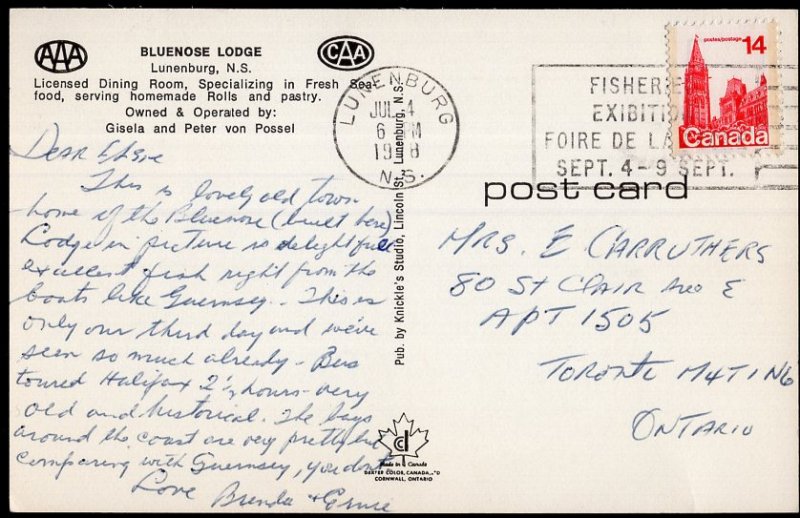 AAA
BLUENOSE LODGE
Lunenburg, N.S.
CAA
Licensed Dining Room, Specializing in Fresh Sea-
food, serving homemade Rolls and pastry.
Owned & Operated by:
Gisela and Peter von Possel
Dear
This is lovely old town
home of the Bluenose (built here)
Lodge in picture is delightful
excellent fish right from the
boats like Guernsey. This is
only our third day and we've
seen so much already - Bus
toured Halifax 2½ hours - very
old and historical. The bays
around the coast are very pretty but
comparing with Guernsey, you don't
Love Brenda + Ernie
Pub. by Knickle's Studio, Lincoln St., Lunenburg, N.S.
LUNENBURG
JUL 4
6 PM
N.S.
FISHERIE
EXIBITI
FOIRE DE LA
SEPT. 4-9 SEPT.
postes/postage 14
Canada
post card
Mrs. E Carruthers
80 St Clair Ave E
Apt 1505
Toronto M4T1N6
Ontario
Made in Canada
DEXTER COLOR, CANADA, LTD
CORNWALL, ONTARIO